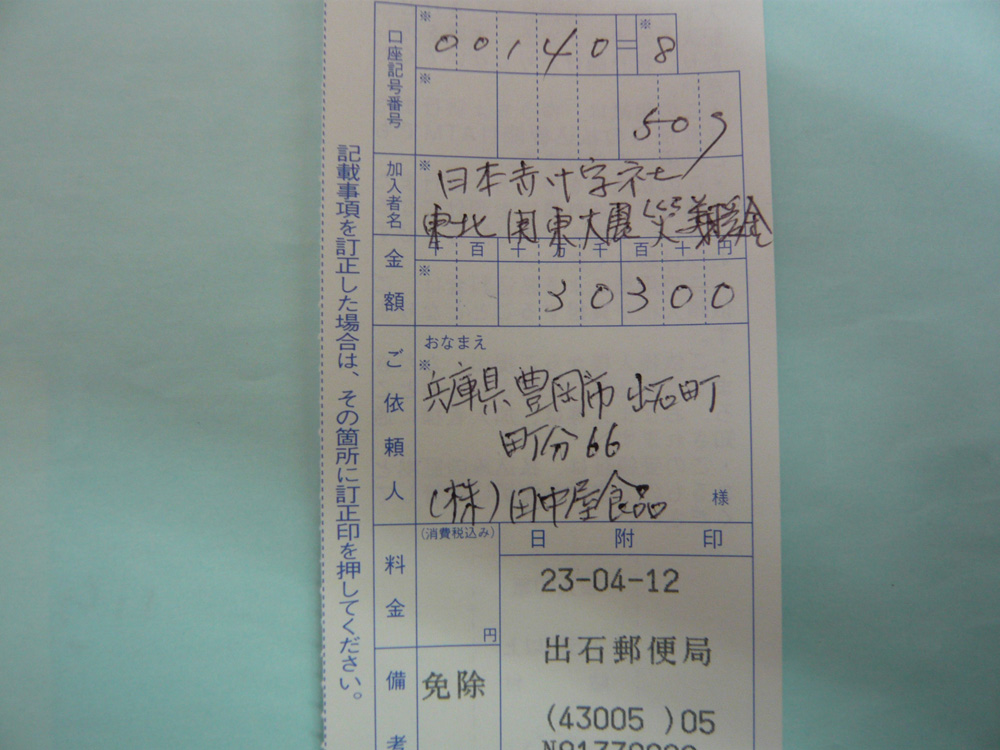 記載事項を訂正した場合は、その箇所に訂正印を押してください。
口座記号番号
※ 00140 ※ 8
※ 507
加入者名
※ 日本赤十字社
東北関東大震災義援金
金額
千 百 十 万 千 百 十 円
※ 30300
ご依頼人
おなまえ
※
兵庫県豊岡市出石町
町分66
(株)田中屋食品
様
料金
(消費税込み)
円
日附印
23-04-12
出石郵便局
備考
免除
(43005 )05